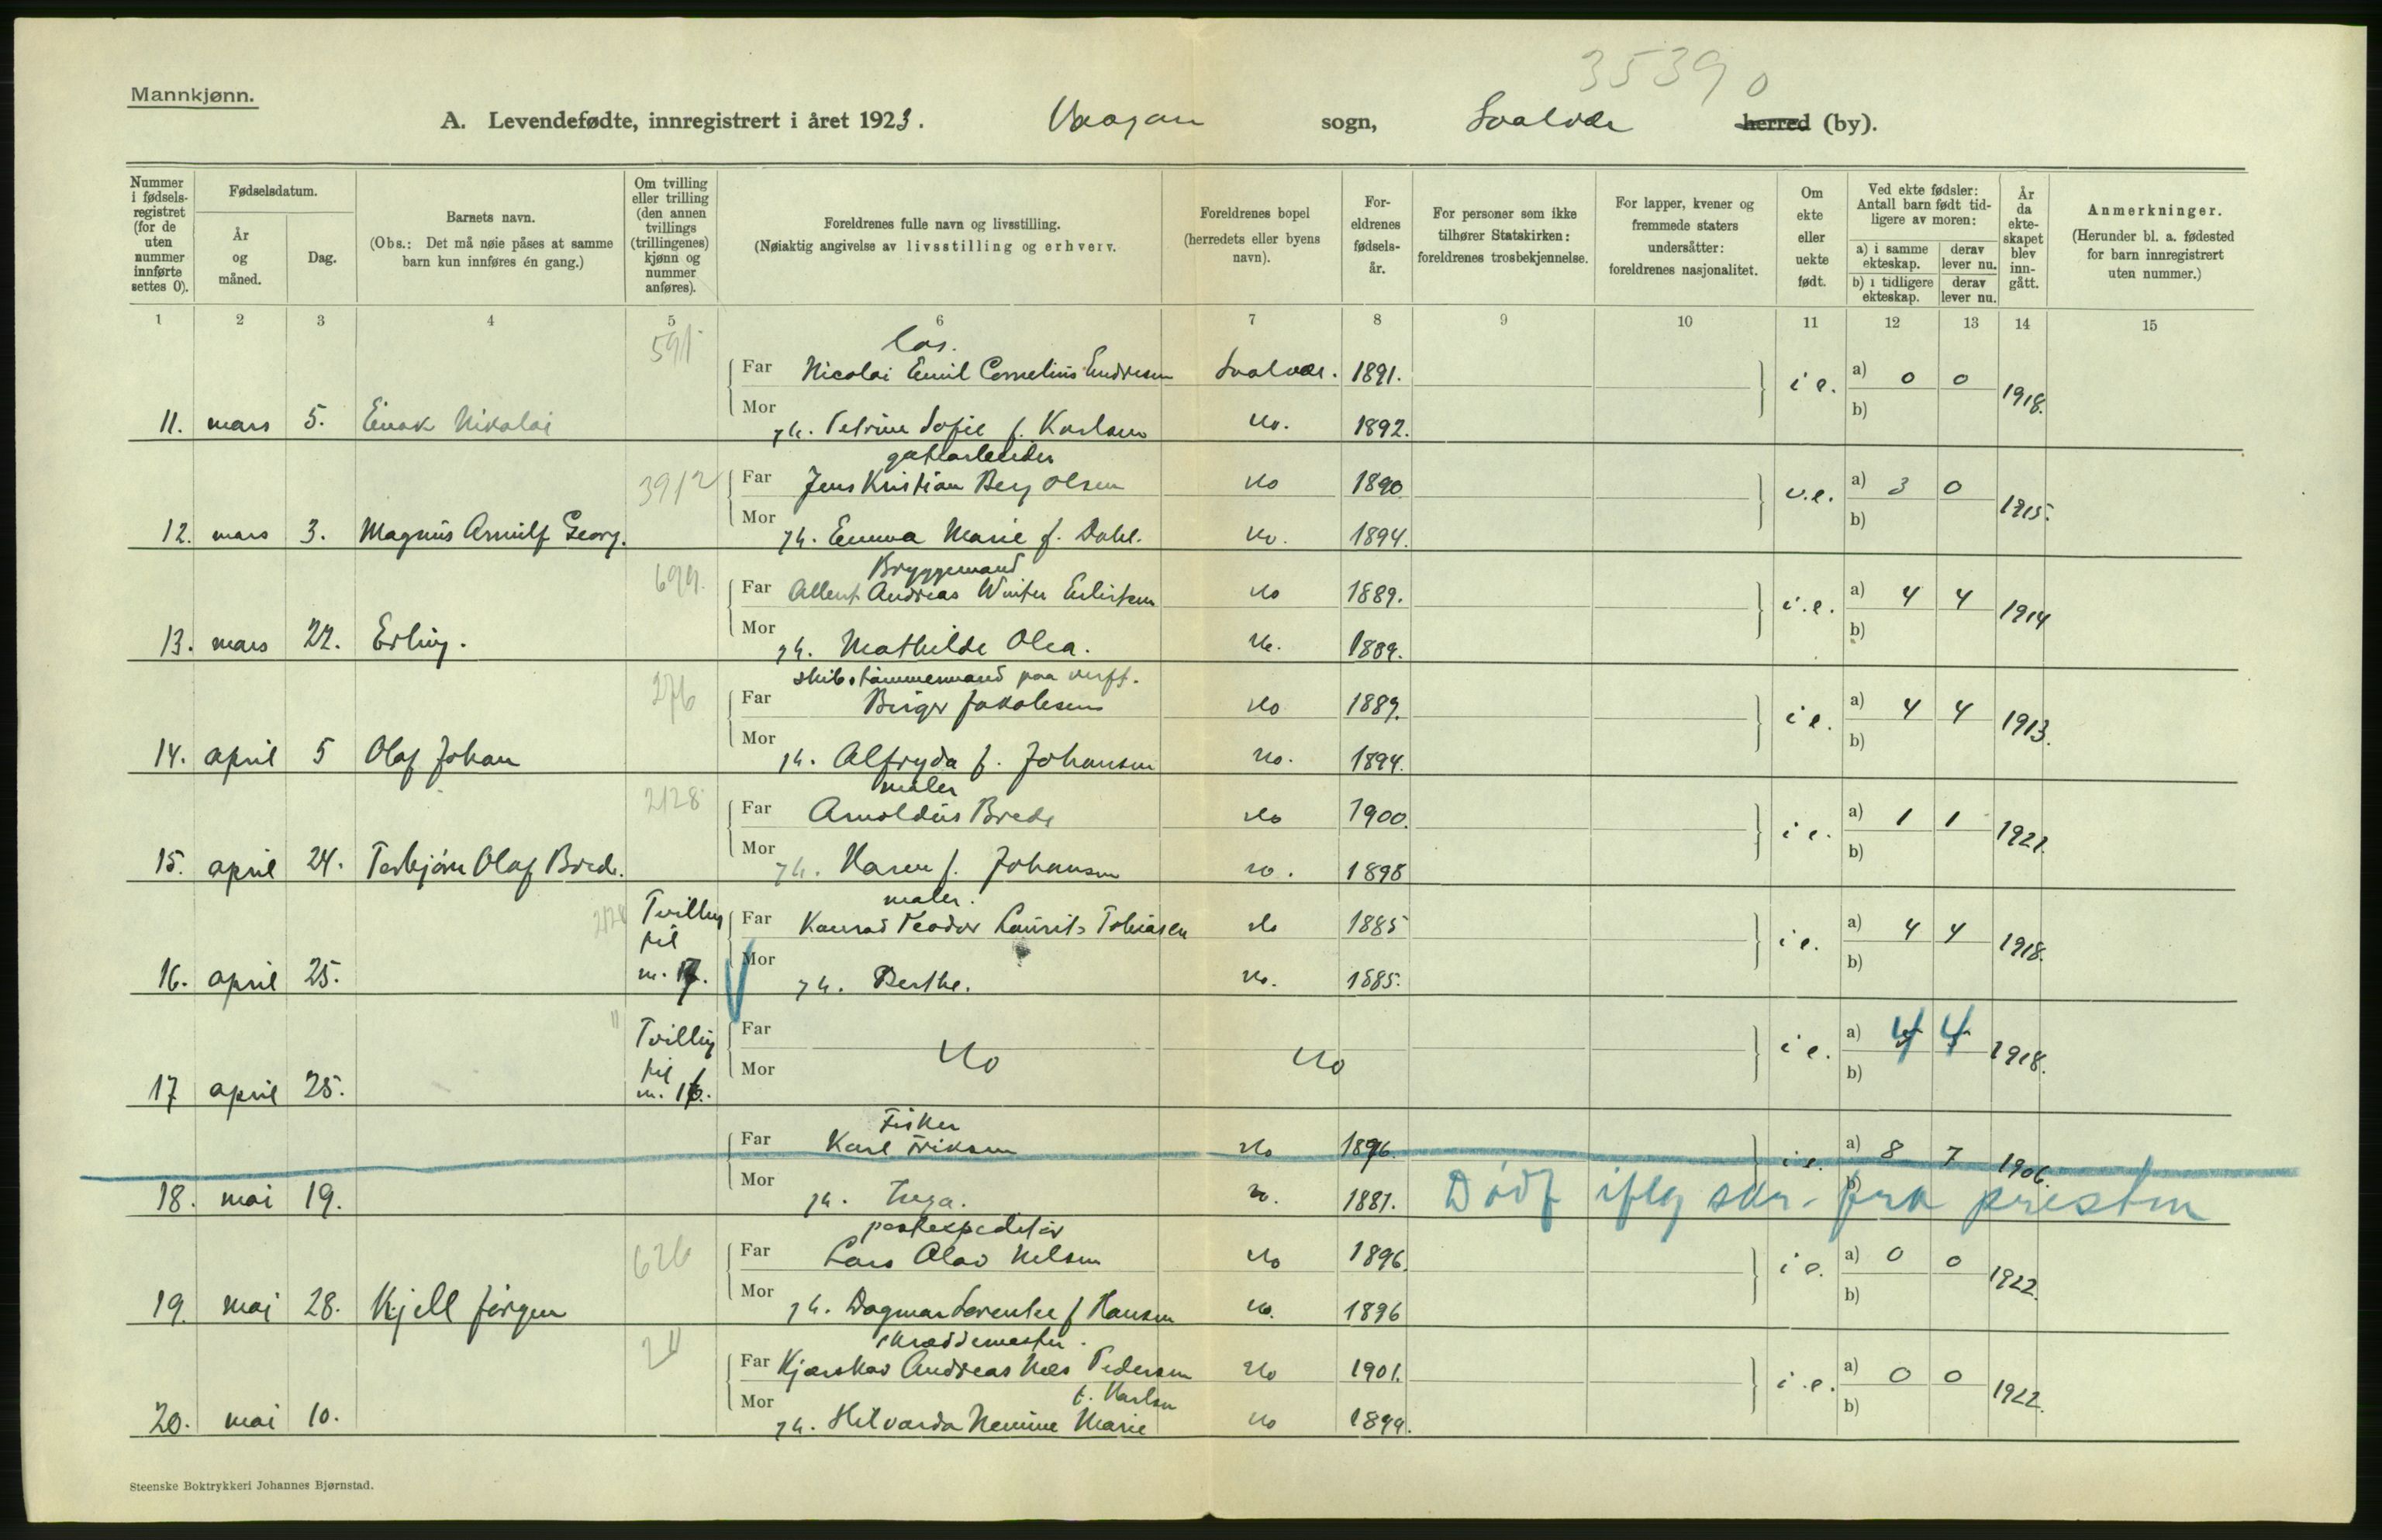 35390
Mannkjønn.
A. Levendefødte, innregistrert i året 1923. Vaagan sogn, Svolvær herred (by).
Nummer i fødselsregistret (for de uten nummer innførte settes 0).
Fødselsdatum.
År og måned.
Dag.
Barnets navn.
(Obs.: Det må nøie påses at samme barn kun innføres én gang.)
Om tvilling eller trilling (den annen tvillings (trillingenes) kjønn og nummer anføres).
Foreldrenes fulle navn og livsstilling.
(Nøiaktig angivelse av livsstilling og erhverv.
Foreldrenes bopel (herredets eller byens navn).
Foreldrenes fødselsår.
For personer som ikke tilhører Statskirken: foreldrenes trosbekjennelse.
For lapper, kvener og fremmede staters undersåtter: foreldrenes nasjonalitet.
Om ekte eller uekte født.
Ved ekte fødsler: Antall barn født tidligere av moren:
a) i samme ekteskap. derav lever nu.
b) i tidligere ekteskap. derav lever nu.
År da ekteskapet blev inngått.
Anmerkninger.
(Herunder bl. a. fødested for barn innregistrert uten nummer.)
1 2 3 4 5 6 7 8 9 10 11 12 13 14 15
591 los.
Far Nicolai Emil Cornelius Endresen Svolvær. 1891. i e. a) 0 0 1918.
11. mars 5. Einar Nikolai Mor Petrine Sofie f. Karlsen do. 1892. b)
3912 gatearbeider
Far Jens Kristian Berg Olsen do 1890 u.e. a) 3 0 1915.
12. mars 3. Magnus Arnulf Georg. Mor Emma Marie f. Dahl. do. 1894. b)
699. Bryggemand
Far Albert Andreas Winter do 1889. i.e. a) 4 4 1914
13. mars 22. Erling. Mor Mathilde Olea. do. 1889. b)
276 skibstømmermand paa verft.
Far Birger Jakobsen do 1889. i e. a) 4 4 1913.
14. april 5 Olaf Johan Mor Alfryda f. Johansen do. 1894. b)
2128 maler
Far Arnoldus Brede do 1900. i e. a) 1 1 1921.
15. april 24. Torbjörn Olaf Brede. Mor Karen f. Johansen do. 1898 b)
2128 Tvilling til m. 17. maler.
Far Konrad Teodor Laurits Tobiasen do 1885 i e. a) 4 4 1918.
16. april 25. Mor Berthe. do. 1885. b)
" Tvilling til m. 16.
Far do do i e. a) 4 4 1918.
17 april 25. Mor b)
Fisker
Far Karl Eriksen do 1876. i e. a) 8 7 1906.
18. mai 19. Mor Inga. do. 1881. b) Dødf iflg skr. fra presten
626 postexpeditør
Far Lars Olav Nelsen do 1896. i e. a) 0 0 1922.
19. mai 28. Kjell Jørgen Mor Dagmar Lorentse f Hansen do. 1896 b)
211 skræddemester.
Far Andreas Pedersen do 1901. i.e. a) 0 0 1922.
f. Karlsen
20. mai 10. Mor Marie do 1899. b)
Steenske Boktrykkeri Johannes Bjørnstad.